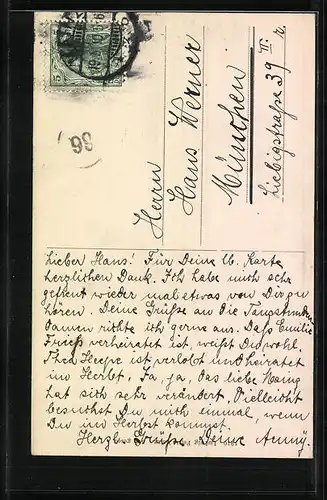 Herrn
Hans Werner
München
Liebigstraße 39 III r.
Lieber Hans! Für Deine lb. Karte
herzlichen Dank. Ich habe mich sehr
gefreut wieder mal etwas von Dir zu
hören. Deine Grüße an die Tanzstunden
Damen richte ich gerne aus. Daß Emilie
verheiratet ist, weißt Du wohl.
ist verlobt und heiratet
im Herbst. Ja, ja, das liebe Mainz
hat sich sehr verändert. Vielleicht
besuchst Du mich einmal, wenn
Du im Herbst kommst.
Herzl. Grüße Deine Aenny.